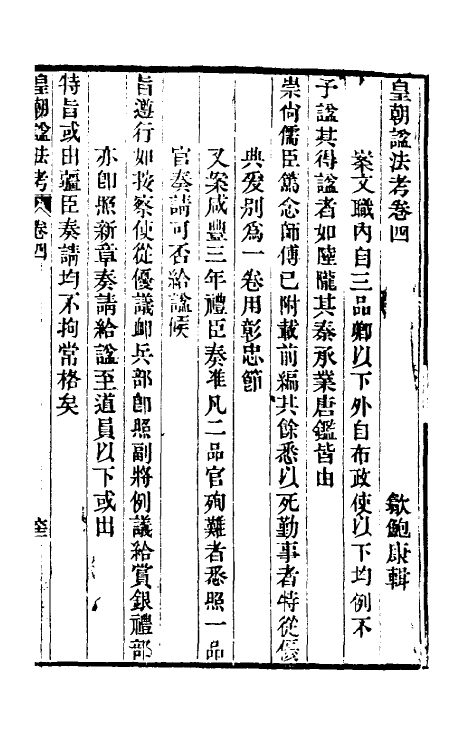 皇朝諡法考卷四
歙鮑康輯
案文職內自三品卿以下外自布政使以下均例不
予諡其得諡者如陸隴其秦承業唐鑑皆由
崇尚儒臣篤念師傅已附載前編其餘悉以死勤事者特從優
典爰別爲一卷用彰忠節
又案咸豐三年禮臣奏准凡二品官殉難者悉照一品
官奏請可否給諡候
旨遵行如按察使從優議卹兵部卽照副將例議給賞銀禮部
亦卽照新章奏請給諡至道員以下或由
特旨或由疆臣奏請均不拘常格矣
皇朝諡法考 卷四